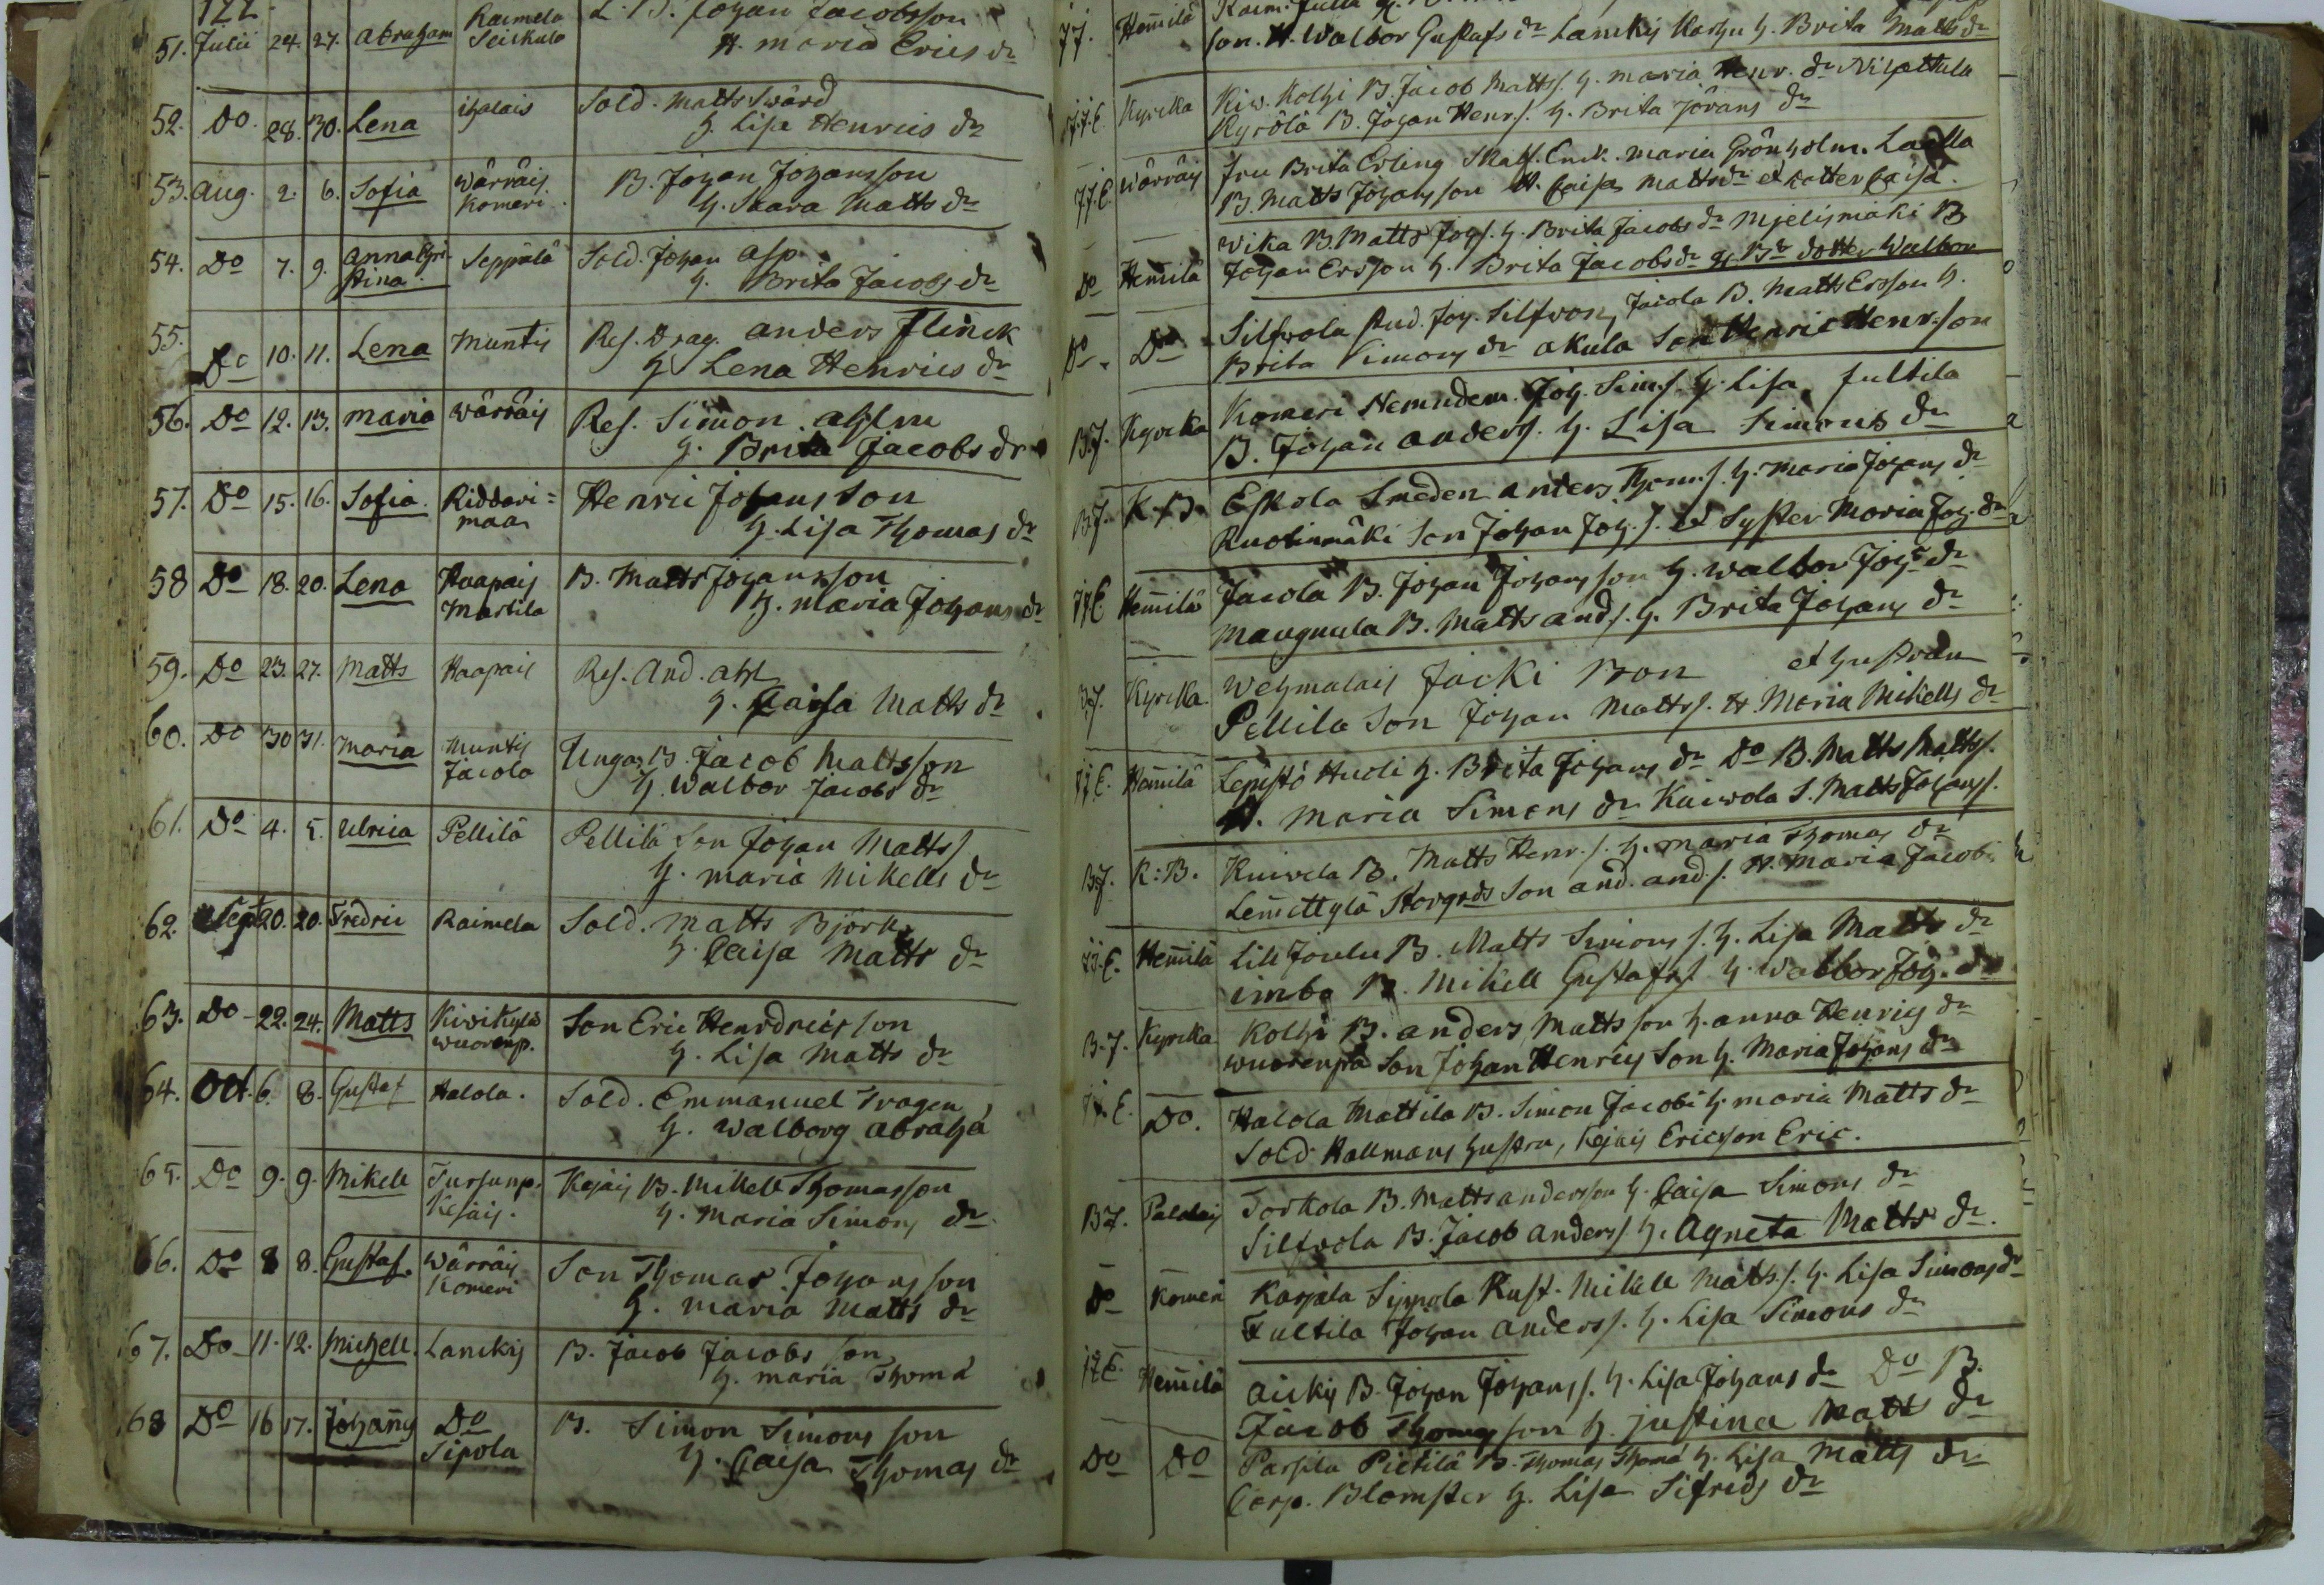 122
51. Julii 24. 27. Abraham Raimela L. B. Johan Jacobsson
Seikula H. Maria Erics dr
52. Do. 28. 30. Lena ihalais Sold. Matts Swärd
H. Lisa Henrics dr
53. Aug. 2. 6. Sofia Wärräis B. Johan Johansson
Komeri H. Saara Matts dr
54. Do 7. 9. Anna Chri- Seppälä Sold. Johan Asp
stina H. Brita Jacobs dr
55. Do 10. 11. Lena Muntis Res. Drag. Anders Flinck
H. Lena Henrics dr
56. Do 12. 13. Maria Wärräis Res. Simon Ahlm
H. Brita Jacobs dr
57. Do 15. 16. Sofia. Riddari= Henric Johansson
maa H. Lisa Thomas dr
58 Do 18. 20. Lena Haapais B. Matts Johansson
Martila H. Maria Johans dr
59. Do 23. 27. Matts Haapais Res. And. Ahl
H. Caisa Matts dr
60. Do 30 31. Maria Muntis Unga B. Jacob Mattsson
Jacola H. Walbor Jacobs dr
61. Do 4. 5. Ulrica Pellilä Pellilä Son Johan Matts s.
H. Maria Mikells dr
62. Sept 20. 20. Fredric Raimela Sold. Matts Björk
H. Caisa Matts dr
63. Do 22. 24. Matts Kivikylä Son Eric Henrdricsson
Wuorenp. H. Lisa Matts dr
64. Oct. 6. 8. Gustaf Halola. Sold. Emmanuel Tragen
H. Walborg Abraha
65. Do 9. 9. Mikell Tursunp. Kejäis B. Mikell Thomasson
Kejäis. H. Maria Simons dr
66. Do 8 8. Gustaf. Wärräis Son Thomas Johansson
Komeri H. Maria Matts dr
67. Do 11. 12. Michell. Lanckis B. Jacob Jacobsson
H. Maria Thoma
68 Do 16 17. Johans Do B. Simon Simonsson
Sipola H. Caisa Thomas dr
77. Hemilä
son. H. Walbor Gustafs dr Lanckis Karhu H. Brita Matts dr
77.E Kyrcka Kiw. Kolhi B. Jacob Matts s. H. Maria Henr. dr Nihattula
Kyrölä B. Johan Henr. s. H. Brita Jörans dr
77.E. Wärräis Fru Brita Erling Enck. Maria Grönholm. Laulla
B. Matts Johansson H. Caisa Matts dr et dotter Caisa.
Do Hemilä Wika B. Matts Joh s. H. Brita Jacobs dr Mjelismäki B
Johan Ersson H. Brita Jacobs dr dotter Walbor
Do. Do Silfwola Rud. Joh. Silfwon, Jacola B. Matts Ersson H.
Brita Simons dr Akula Son Henric Henr.son
B.J. Kyrcka Komeri Nemndem. Joh. Sim. s. H. Lisa Jultila
B. Johan Anders s. H. Lisa Simons dr
B.J. K.B. Eskola Smeden Anders Thom. s. H. Maria Johans dr
Ruohinmäki Son Johan Joh. s. et Syster Maria Joh. dr
77E Hemilä Jacola B. Johan Johansson H. Walbor Johs dr
Maugnula B. Matts And. s. H. Brita Johans dr
B.J. Kyrcka. Wehmalais Jacki Bon et hustrun
Pellila Son Johan Matts s. H. Maria Mikells dr
77.E. Hemilä Lepistö Huoli H. Brita Johans dr Do B. Matts Matts s.
H. Maria Simons dr Kuiwola S. Matts Johans s.
B.J. K:B. Kuiwola B. Matts Henr. s. H. Maria Thomas dr
Lemettylä Storgrds Son And. And. s. H. Maria Jacobs
77.E. Hemilä Lill Joulu B. Matts Simons s. H. Lisa Matts dr
imbo B. Mikell Gustafs s. H. Walbor Joh. dr
B.J. Kyrcka Kolhi B. Anders Mattsson H. Anna Henrics dr
Wuorenpä Son Johan Henricsson H. Maria Johans dr
77.E. Do. Halola Mattila B. Simon Jacobs H. Maria Matts dr
Sold Hallmans hustru, Kejäis Ericsson Eric.
B.J. Palalais Torkola B. Matts Andersson H. Caisa Simons dr
Silfwola B. Jacob Anders s. H. Agneta Matts dr.
Do Komeri Karjala Sippola Rust. Mikell Matts s. H. Lisa Simons dr
Jultila Johan Anders s. H. Lisa Simons dr
77.E. Hemilä Aickis B. Johan Johans s. H. Lisa Johans dr Do B.
Jacob Thomsson H. Justina Matts dr
Do Do Parsila Pietilä B. Thomas Thoma H. Lisa Matts dr
Corp. Blomster H. Lisa Sifreds dr